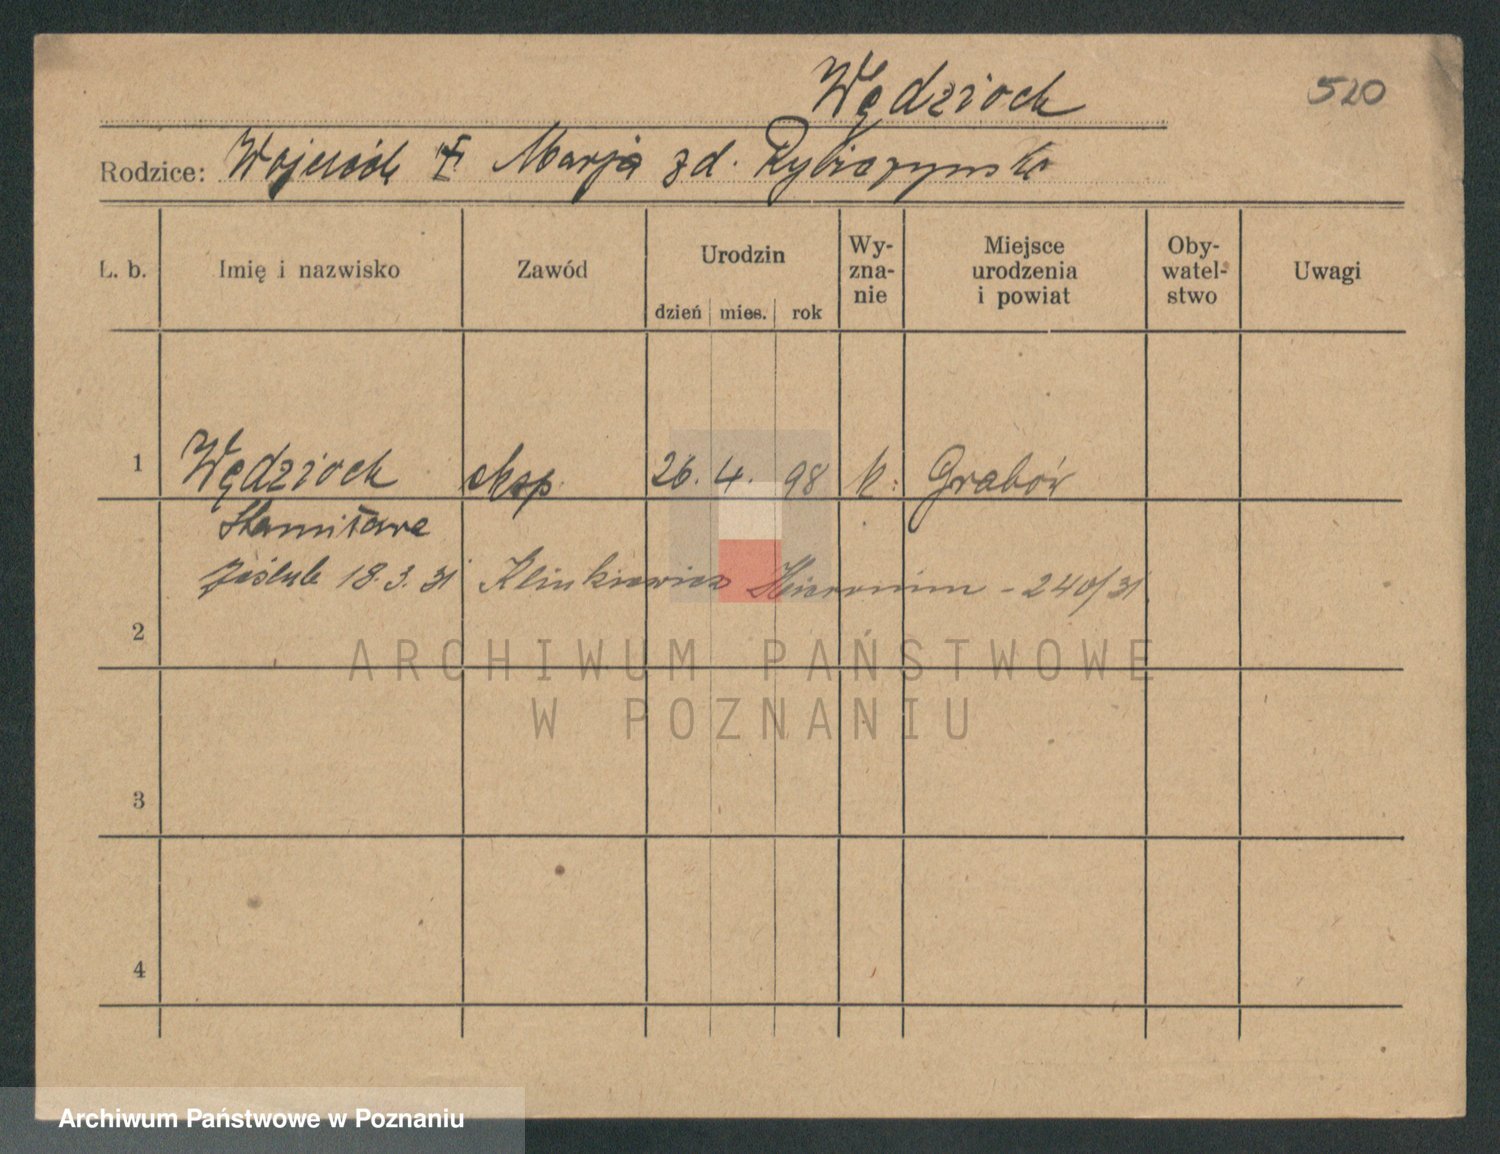 Wędzioch
520
Rodzice: Wojciech Marja zd. Rybiczyńska
L. b. Imię i nazwisko Zawód Urodzin dzień mies. rok Wy-zna-nie Miejsce urodzenia i powiat Oby-watel-stwo Uwagi
1 Wędzioch eksp. 26. 4. 98 k. Grabów
Stanisława
zaślub 18.3.31 Klinkiewicz Hieronim - 240/31
2
ARCHIWUM PAŃSTWOWE
W POZNANIU
3
4
Archiwum Państwowe w Poznaniu